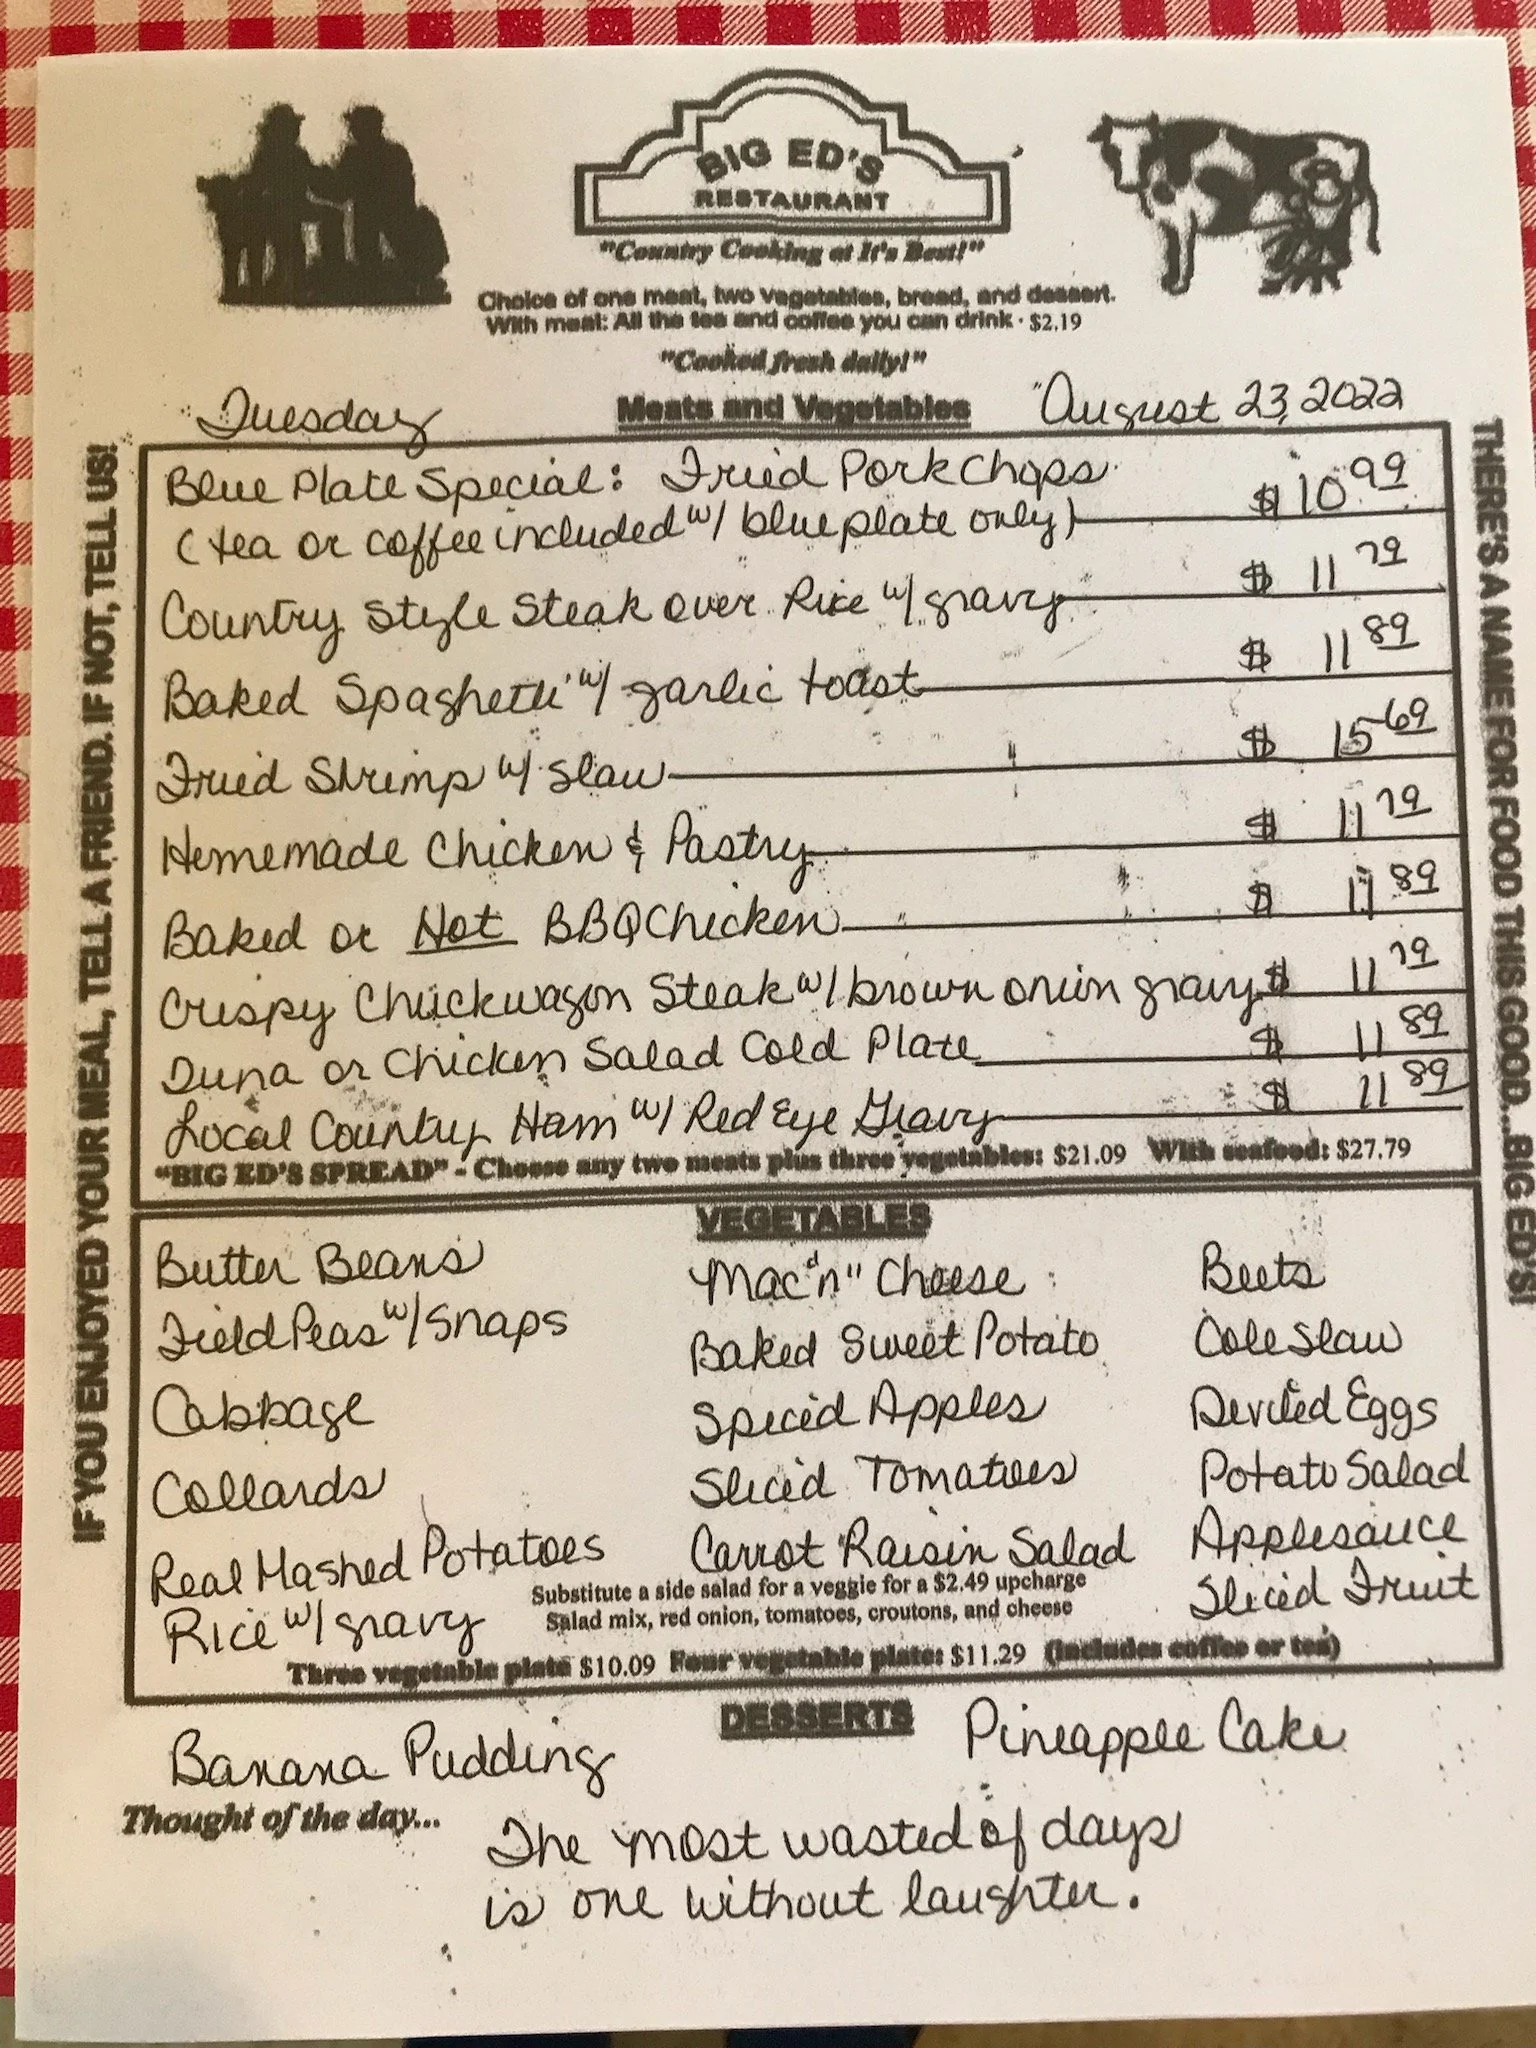 BIG ED'S
RESTAURANT
"Country Cooking at It's Best!"
Choice of one meat, two vegetables, bread, and dessert.
With meal: All the tea and coffee you can drink · $2.19
"Cooked fresh daily!"
Tuesday Meats and Vegetables August 23, 2022
Blue Plate Special: Fried Pork Chops $10.99
(tea or coffee included w/ blue plate only)
Country Style Steak over Rice w/ gravy $ 11.79
Baked Spaghetti w/ garlic toast $ 11.89
Fried Shrimp w/ slaw $ 15.69
Homemade Chicken & Pastry $ 11.79
Baked or Hot BBQ Chicken $ 11.89
Crispy Chuckwagon Steak w/ brown onion gravy $ 11.79
Tuna or Chicken Salad Cold Plate $ 11.89
Local Country Ham w/ Red Eye Gravy $ 11.89
"BIG ED'S SPREAD" - Choose any two meats plus three vegetables: $21.09 With seafood: $27.79
VEGETABLES
Butter Beans Mac "n" Cheese Beets
Field Peas w/ Snaps Baked Sweet Potato Cole Slaw
Cabbage Spiced Apples Deviled Eggs
Collards Sliced Tomatoes Potato Salad
Real Mashed Potatoes Carrot Raisin Salad Applesauce
Rice w/ gravy Sliced Fruit
Substitute a side salad for a veggie for a $2.49 upcharge
Salad mix, red onion, tomatoes, croutons, and cheese
Three vegetable plate $10.09 Four vegetable plate: $11.29 (includes coffee or tea)
DESSERTS
Banana Pudding Pineapple Cake
Thought of the day...
The most wasted of days
is one without laughter.
IF YOU ENJOYED YOUR MEAL, TELL A FRIEND. IF NOT, TELL US!
THERE'S A NAME FOR FOOD THIS GOOD...BIG ED'S!